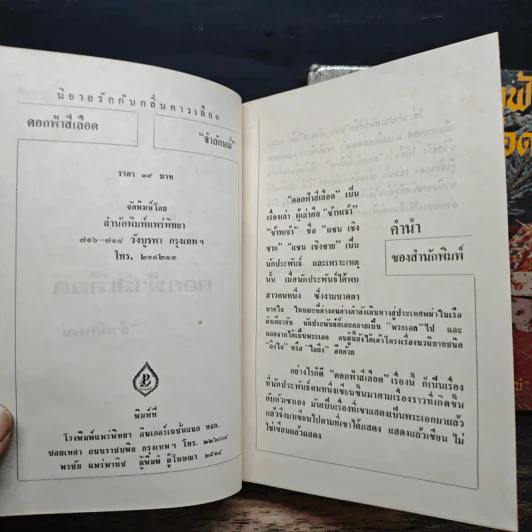 นิยายรักกับกลิ่นคาวเลือด
ดอกฟ้าสีเลือด
“จำลักษณ์”
ราคา ๓๙ บาท
จัดพิมพ์โดย
สำนักพิมพ์แพร่พิทยา
๗๑๖-๗๑๘ วังบูรพา กรุงเทพฯ
โทร. ๒๑๔๒๘๓
พิมพ์ที่
โรงพิมพ์แพร่พิทยา อินเตอร์เนชั่นแนล หจก.
ซอยเทศา ถนนราชบพิธ กรุงเทพฯ โทร.
พรชัย แพร่พานิช ผู้พิมพ์ ผู้โฆษณา ๒๕๑๔
คำนำ
ของสำนักพิมพ์
“ดอกฟ้าสีเลือด” เป็น
เรื่องเล่า ผู้เล่าคือ “ข้าพเจ้า”
“ข้าพเจ้า” ชื่อ “แซน เชิง
ชาย” “แซน เชิงชาย” เป็น
นักประพันธ์ และเพราะเหตุ
นั้น เมื่อนักประพันธ์ได้พบ
สาวคนหนึ่ง ซึ่งงามบาดตา
บาดใจ ในขณะที่ต่างคนต่างกำลังเดินทางสู่ประเทศพม่าในเรือ
ลำเดียวกัน นักประพันธ์ก็เลยกลายเป็น “พระเอก” ไป และ
“ถึงใจ” หรือ “ไม่ถึง” อีกด้วย
อย่างไรก็ดี “ดอกฟ้าสีเลือด” เรื่องนี้ ก็เป็นเรื่อง
ที่นักประพันธ์คนหนึ่งเขียนขึ้นมาตามเรื่องราวที่เกิดขึ้น
กับตัวเขาเอง มันเป็นเรื่องที่เขาแสดงเป็นพระเอกมาแล้ว
แล้วจึงมาเขียนไปตามที่เขาได้แสดง แสดงแล้วเขียน ไม่
ใช่เขียนแล้วแสดง